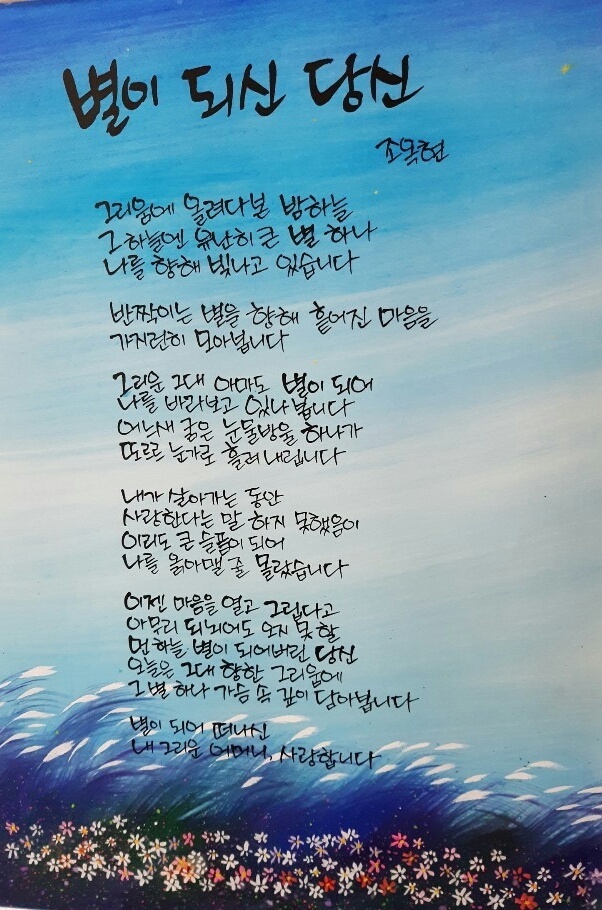 별이 되신 당신
조옥현
그리움에 올려다본 밤하늘
그 하늘엔 유난히 큰 별 하나
나를 향해 빛나고 있습니다
반짝이는 별을 향해 흩어진 마음을
가지런히 모아봅니다
그리운 그대 아마도 별이 되어
나를 바라보고 있나 봅니다
어느새 굵은 눈물방울 하나가
또르르 눈가로 흘러 내립니다
내가 살아가는 동안
사랑한다는 말 하지 못했음이
이리도 큰 슬픔이 되어
나를 옭아맬 줄 몰랐습니다
이젠 마음을 열고 그립다고
아무리 되뇌어도 오지 못할
먼 하늘 별이 되어버린 당신
오늘은 그대 향한 그리움에
그 별 하나 가슴 속 깊이 담아봅니다
별이 되어 떠나신
내 그리운 어머니, 사랑합니다